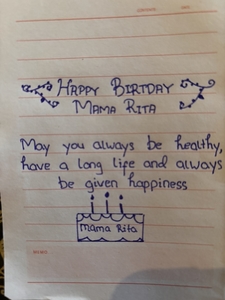 HAPPY BIRTDAY
MAMA RITA
May you always be healthy,
have a long life and always
be given happiness
Mama Rita